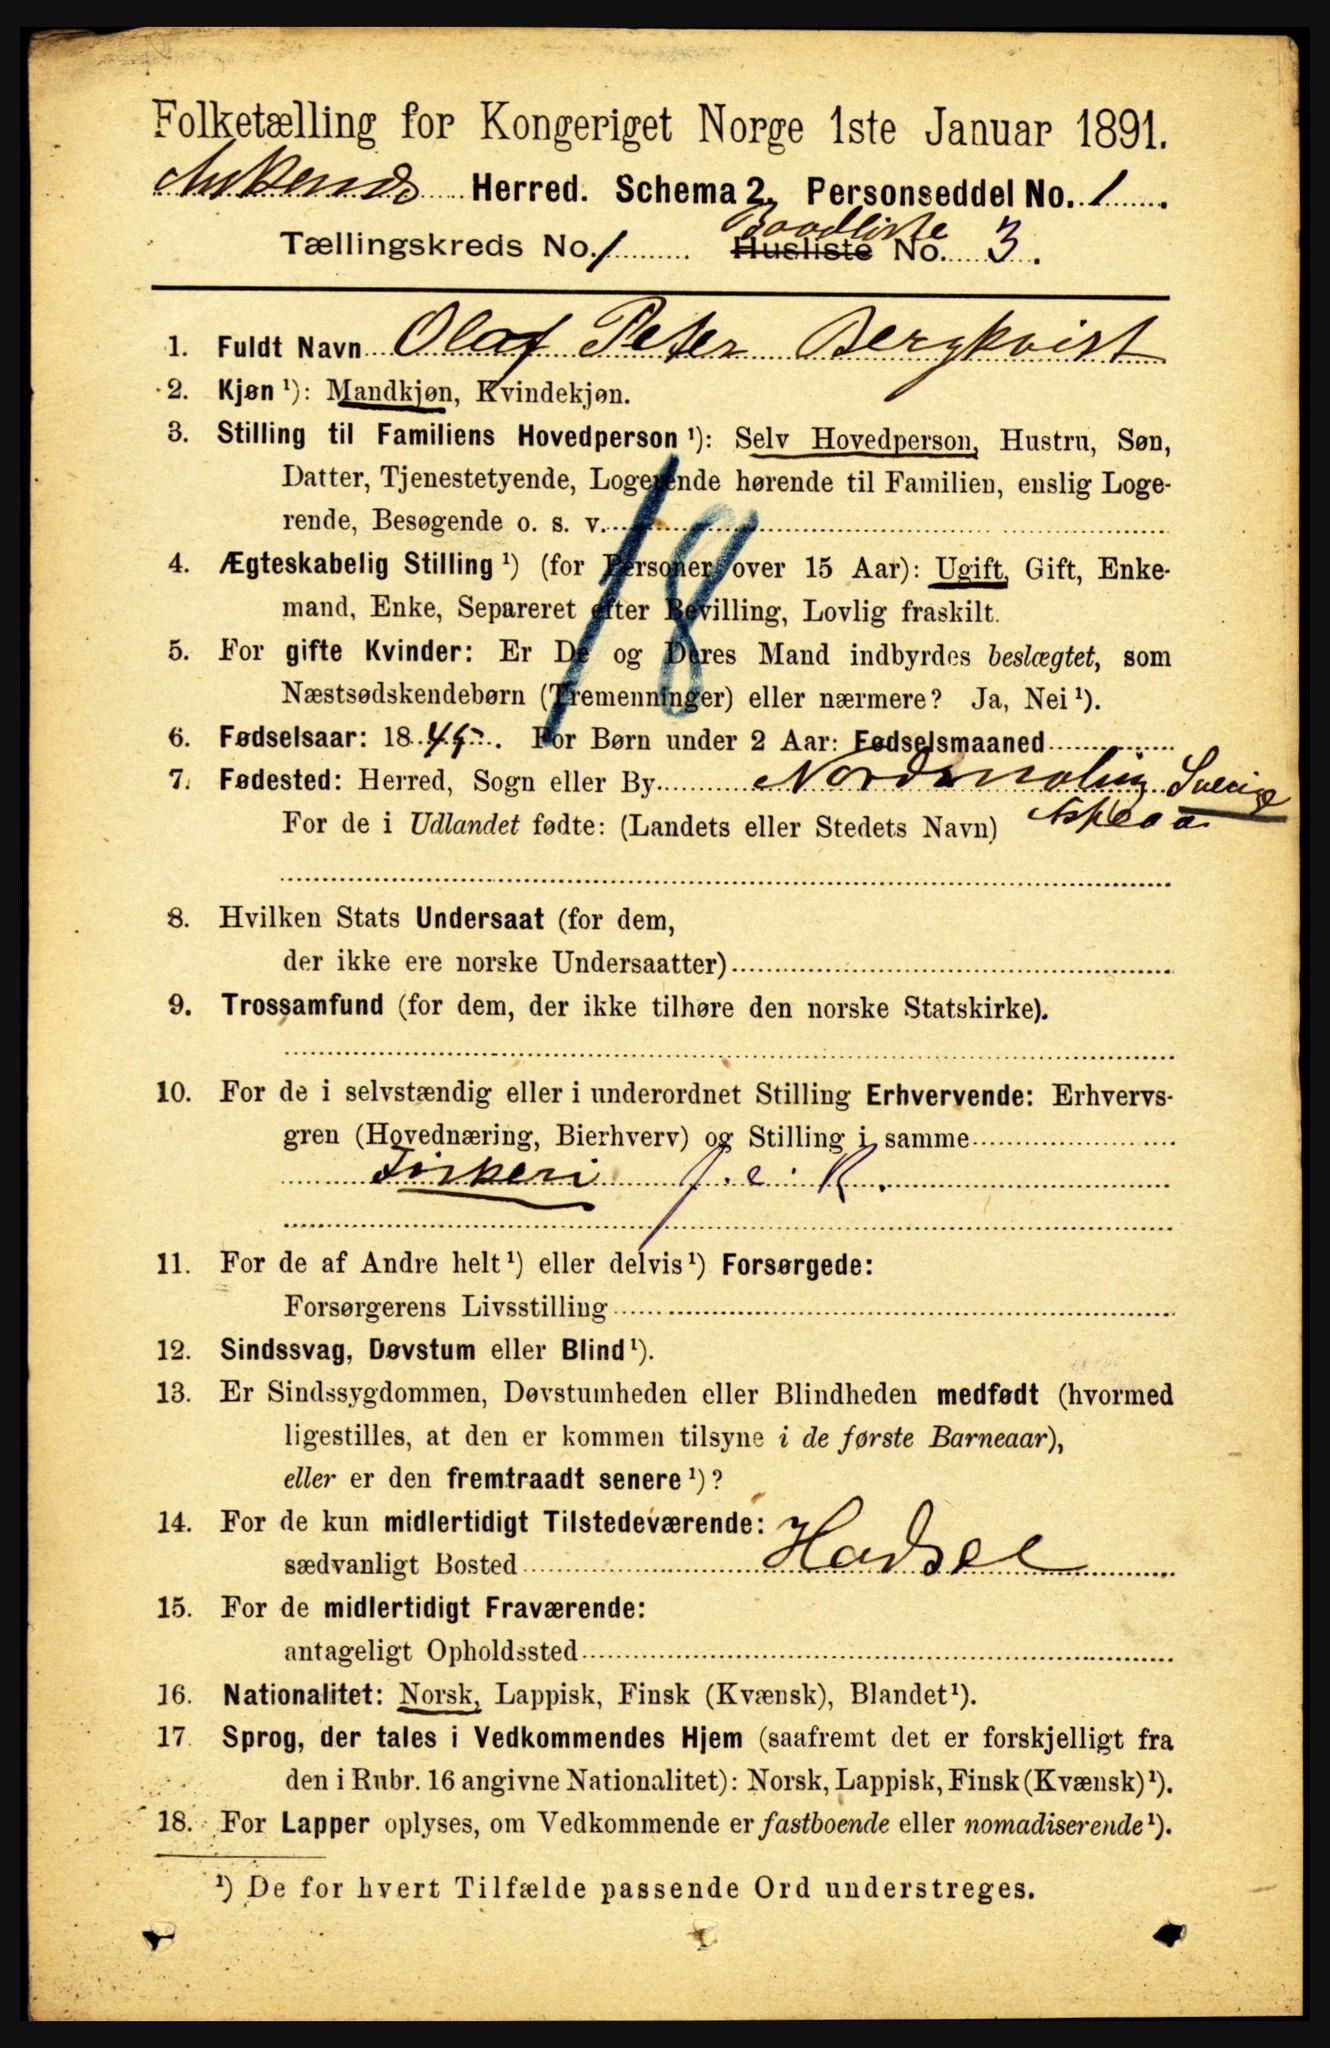 Folketælling for Kongeriget Norge 1ste Januar 1891.
Ankenes Herred. Schema 2. Personseddel No. 1.
Tællingskreds No. 1 Baadliste Husliste No. 3.
1. Fuldt Navn Olaf Peter Bergkvist
2. Kjøn ¹): Mandkjøn, Kvindekjøn.
3. Stilling til Familiens Hovedperson ¹): Selv Hovedperson, Hustru, Søn,
Datter, Tjenestetyende, Logerende hørende til Familien, enslig Loge-
rende, Besøgende o. s. v.
18
4. Ægteskabelig Stilling ¹) (for Personer over 15 Aar): Ugift, Gift, Enke-
mand, Enke, Separeret efter Bevilling, Lovlig fraskilt.
5. For gifte Kvinder: Er De og Deres Mand indbyrdes beslægtet, som
Næstsødskendebørn (Tremenninger) eller nærmere? Ja, Nei ¹).
6. Fødselsaar: 1845. For Børn under 2 Aar: Fødselsmaaned
7. Fødested: Herred, Sogn eller By Nordmaling Sverige
For de i Udlandet fødte: (Landets eller Stedets Navn) Aspeaa
8. Hvilken Stats Undersaat (for dem,
der ikke ere norske Undersaatter)
9. Trossamfund (for dem, der ikke tilhøre den norske Statskirke).
10. For de i selvstændig eller i underordnet Stilling Erhvervende: Erhvervs-
gren (Hovednæring, Bierhverv) og Stilling i samme
Fiskeri f. e. R.
11. For de af Andre helt ¹) eller delvis ¹) Forsørgede:
Forsørgerens Livsstilling
12. Sindssvag, Døvstum eller Blind ¹).
13. Er Sindssygdommen, Døvstumheden eller Blindheden medfødt (hvormed
ligestilles, at den er kommen tilsyne i de første Barneaar),
eller er den fremtraadt senere ¹)?
14. For de kun midlertidigt Tilstedeværende:
sædvanligt Bosted Hadsel
15. For de midlertidigt Fraværende:
antageligt Opholdssted
16. Nationalitet: Norsk, Lappisk, Finsk (Kvænsk), Blandet ¹).
17. Sprog, der tales i Vedkommendes Hjem (saafremt det er forskjelligt fra
den i Rubr. 16 angivne Nationalitet): Norsk, Lappisk, Finsk (Kvænsk) ¹).
18. For Lapper oplyses, om Vedkommende er fastboende eller nomadiserende ¹).
¹) De for hvert Tilfælde passende Ord understreges.